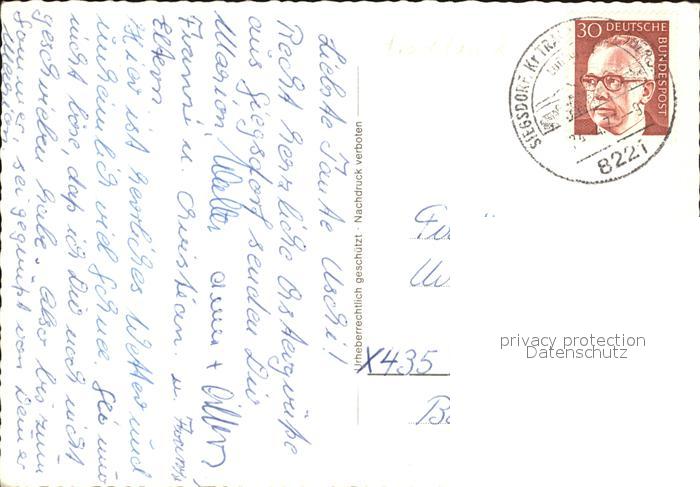 Liebste Tante Uschi!
Recht herzliche Ostergrüße
aus Siegsdorf senden Dir
Marion, Walter
Franzi u. Christian. u.
Eltern
Hier ist herrliches Wetter und
unheimlich viel Schnee. Sei mir
nicht böse, daß ich Dir noch nicht
geschrieben habe. Also bis zum
Sommer sei gegrüßt von Deiner
Marion
Urheberrechtlich geschützt · Nachdruck verboten
30 DEUTSCHE
BUNDESPOST
SIEGSDORF, Kr TRA
8221
X435
privacy protection
Datenschutz